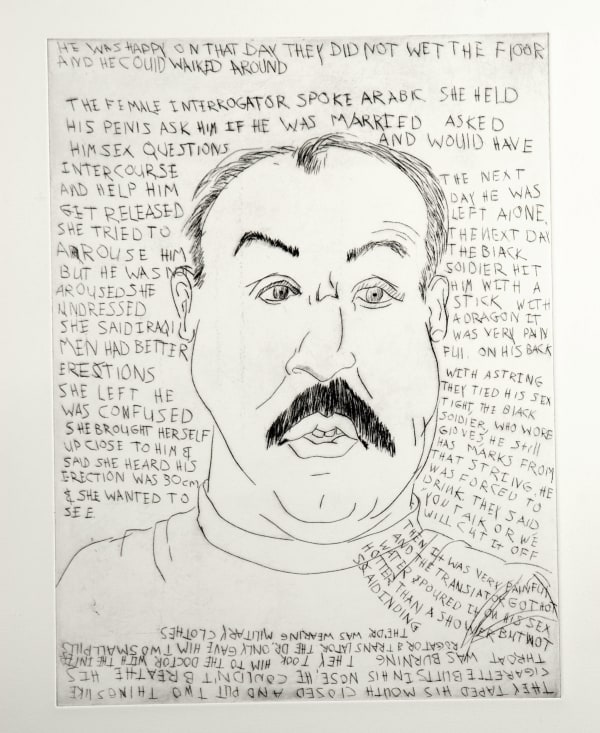 HE WAS HAPPY ON THAT DAY THEY DID NOT WET THE FlOOR
AND HE COUlD WALKED AROUND
THE FEMALE INTERROGATOR SPOKE ARABIC. SHE HELD
HIS PENIS ASK HIM IF HE WAS MARRIED ASKED
HIM SEX QUESTIONS AND WOUlD HAVE
INTERCOURSE
AND HELP HIM
GET RELEASED
SHE TRIED TO
AROUSE HIM
BUT HE WAS NOT
AROUSED SHE
UNDRESSED
SHE SAID IRAQI
MEN HAD BETTER
ERECTIONS
SHE LEFT HE
WAS CONFUSED
SHE BROUGHT HERSELF
UP CLOSE TO HIM &
SAID SHE HEARD HIS
ERECTION WAS 30cm
& SHE WANTED TO
SEE
THE NEXT
DAY HE WAS
LEFT AlONE,
THE NEXT DAY
THE BlACK
SOlDIER HIT
HIM WITH A
STICK WITH
A DRAGON IT
WAS VERY PAIN
FUl. ON HIS BACK
WITH A STRING
THEY TIED HIS SEX
TIGHT, THE BlACK
SOlDIER, WHO WORE
GlOVES, HE STIll
HAS MARKS FROM
THAT STRING. HE
WAS FORCED TO
DRINK THEY SAID
YOU TAlK OR WE
WIll CUT IT OFF
THEN IT WAS VERY PAINFUL
AND THE TRANSLATOR GOT HOT
WATER & POURED IT ON HIS SEX
HOTTER THAN A SHOWER BUT NOT
THEY TAPED HIS MOUTH CLOSED AND PUT TWO THINGS LIKE
CIGARETTE BUTTS IN HIS NOSE, HE COULDN'T BREATHE HIS
THROAT WAS BURNING THEY TOOK HIM TO THE DOCTOR WITH THE INTER
ROGATOR & TRANSLATOR THE DR. ONLY GAVE HIM TWO SMALL PILLS
THE DR. WAS WEARING MILITARY CLOTHES